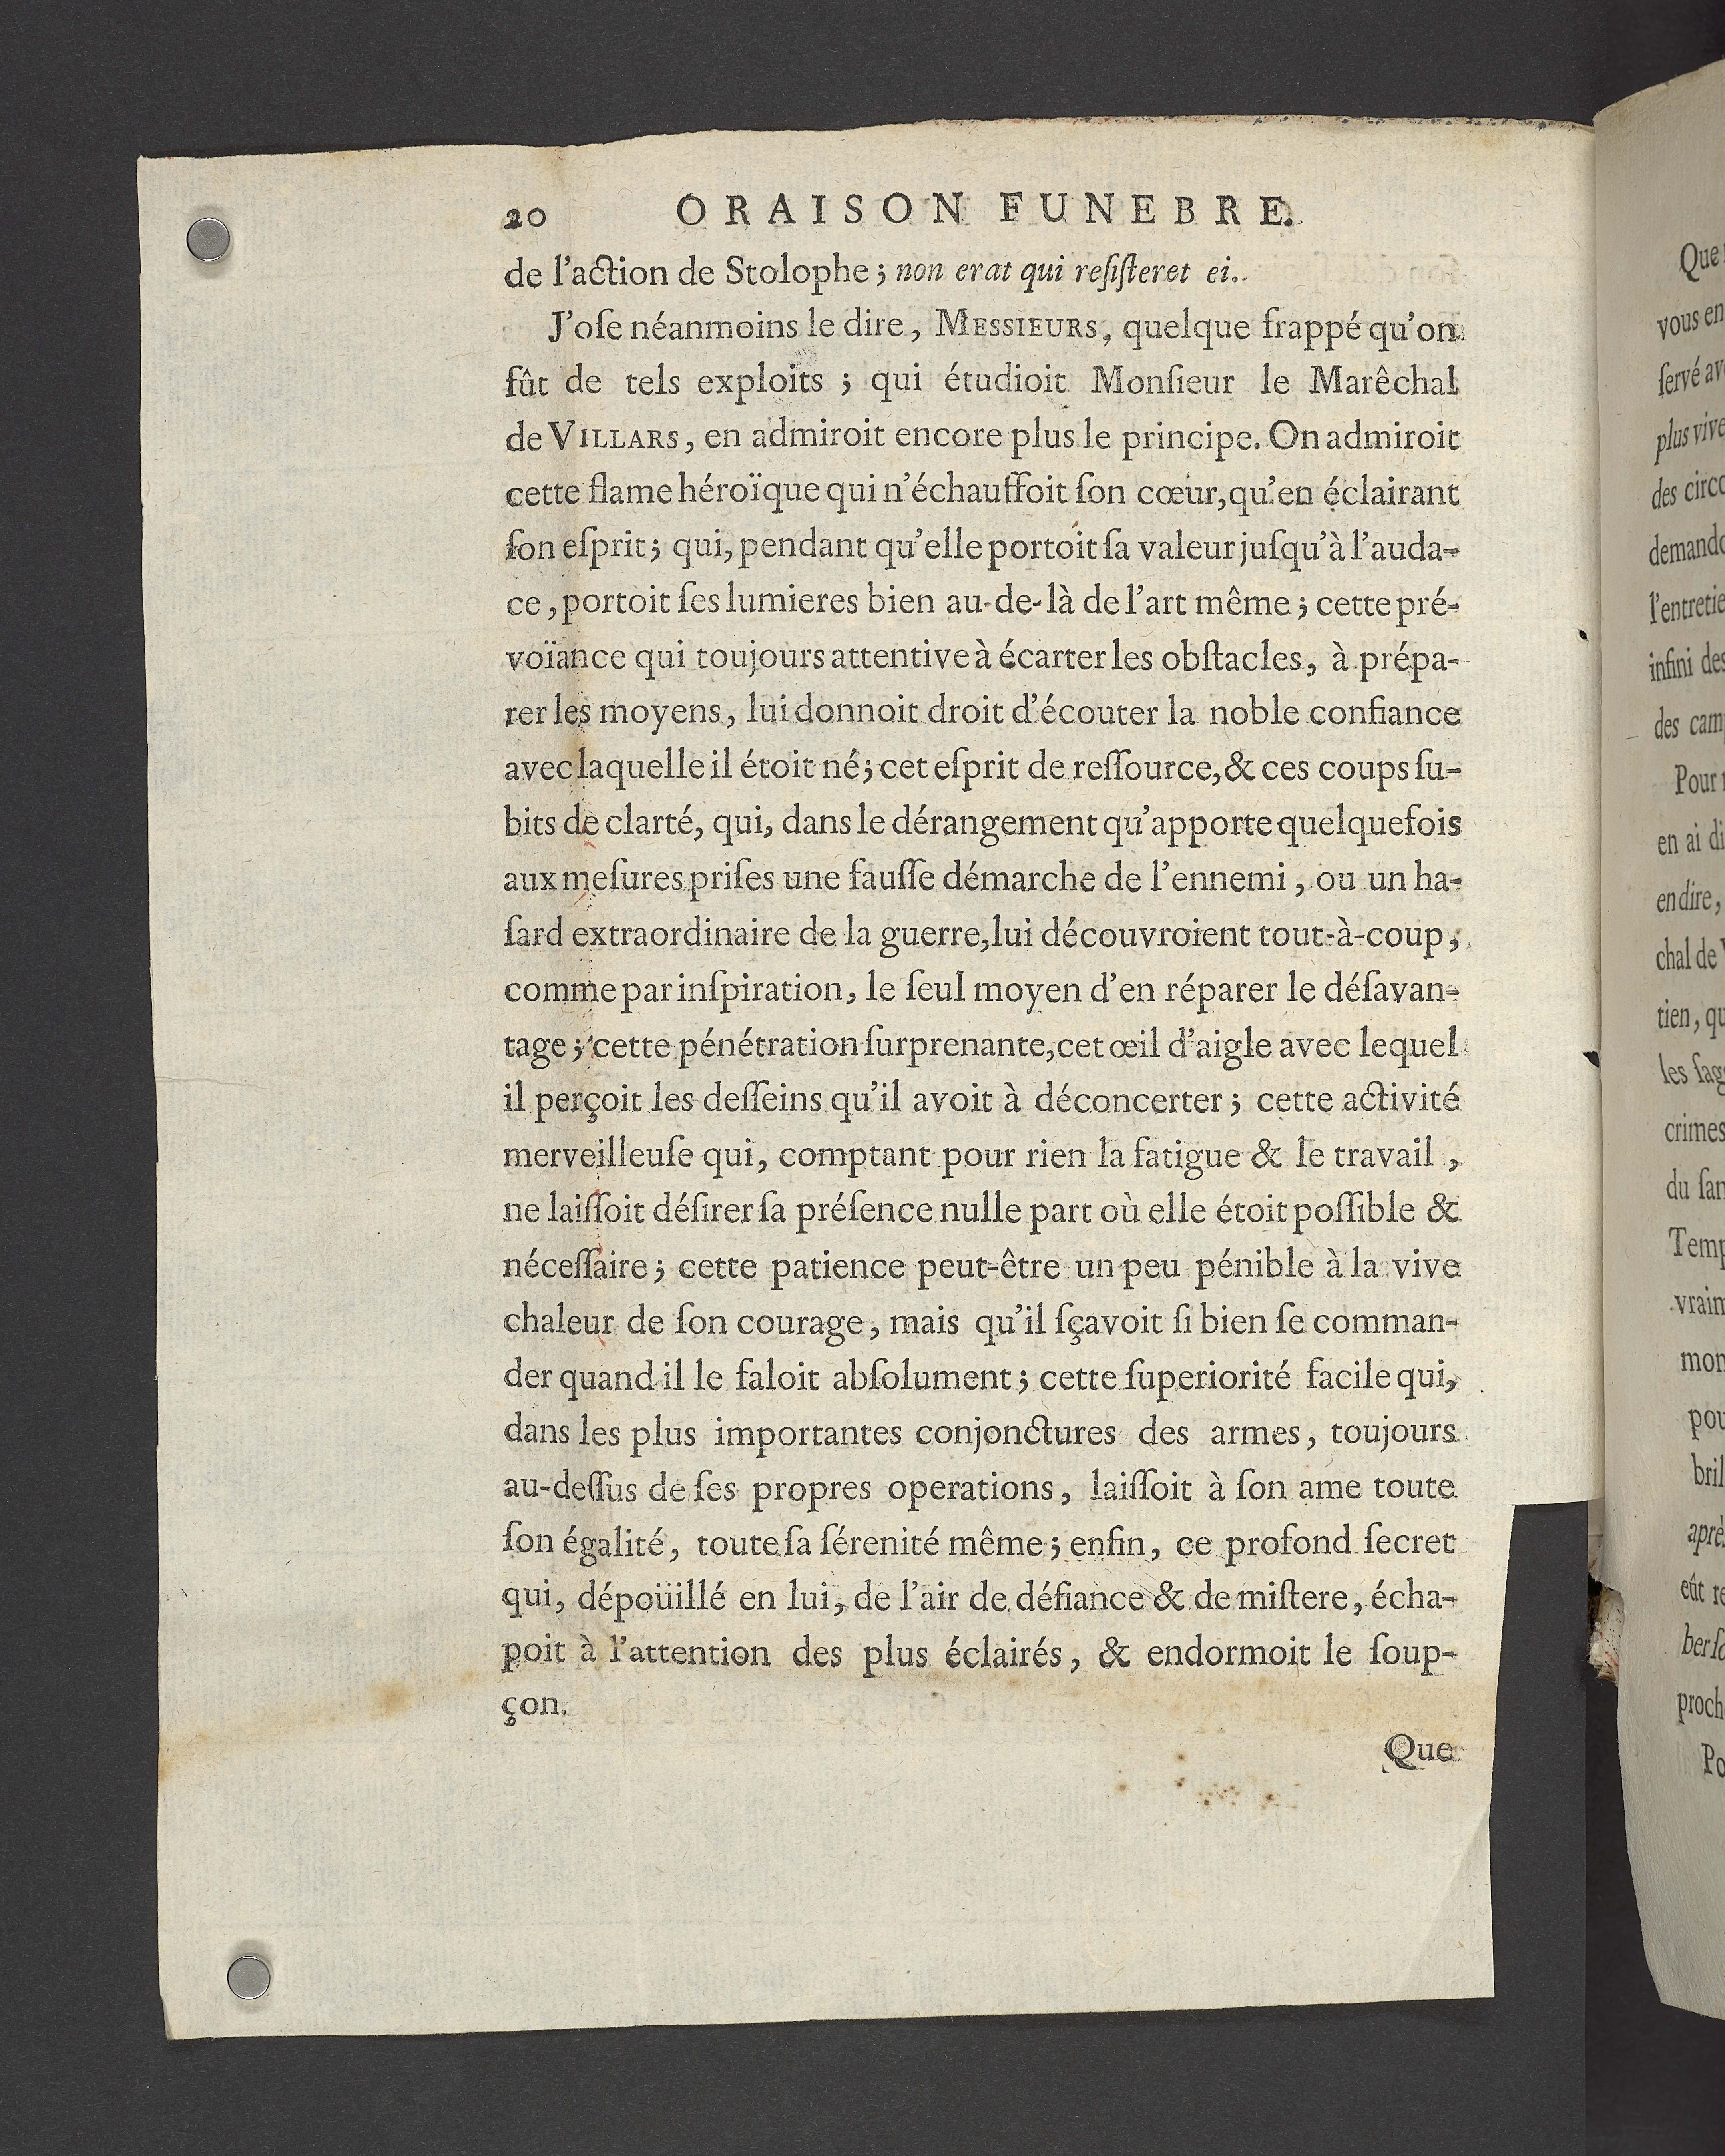 20 ORAISON FUNEBRE.
de l'action de Stolophe ; non erat qui reſiſteret ei.
J'oſe néanmoins le dire, MESSIEURS, quelque frappé qu'on
fût de tels exploits ; qui étudioit Monſieur le Marêchal
de VILLARS, en admiroit encore plus le principe. On admiroit
cette flame héroïque qui n'échauffoit ſon cœur, qu'en éclairant
ſon eſprit ; qui, pendant qu'elle portoit ſa valeur juſqu'à l'auda-
ce, portoit ſes lumieres bien au-de-là de l'art même ; cette pré-
voïance qui toujours attentive à écarter les obſtacles, à prépa-
rer les moyens, lui donnoit droit d'écouter la noble confiance
avec laquelle il étoit né ; cet eſprit de reſſource, & ces coups ſu-
bits de clarté, qui, dans le dérangement qu'apporte quelquefois
aux meſures priſes une fauſſe démarche de l'ennemi, ou un ha-
ſard extraordinaire de la guerre, lui découvroient tout-à-coup,
comme par inſpiration, le ſeul moyen d'en réparer le déſavan-
tage ; cette pénétration ſurprenante, cet œil d'aigle avec lequel
il perçoit les deſſeins qu'il avoit à déconcerter ; cette activité
merveilleuſe qui, comptant pour rien la fatigue & le travail,
ne laiſſoit déſirer ſa préſence nulle part où elle étoit poſſible &
néceſſaire ; cette patience peut-être un peu pénible à la vive
chaleur de ſon courage, mais qu'il ſçavoit ſi bien ſe comman-
der quand il le faloit abſolument ; cette ſuperiorité facile qui,
dans les plus importantes conjonctures des armes, toujours
au-deſſus de ſes propres operations, laiſſoit à ſon ame toute
ſon égalité, toute ſa ſérenité même ; enfin, ce profond ſecret
qui, dépoüillé en lui, de l'air de défiance & de miſtere, écha-
poit à l'attention des plus éclairés, & endormoit le ſoup-
çon.
Que
Que
vous en
ſervé
plus vive
des
l'entretie
infini des
des
Pour
en ai
en dire,
chal de
tien,
les
crimes
du
après
eût